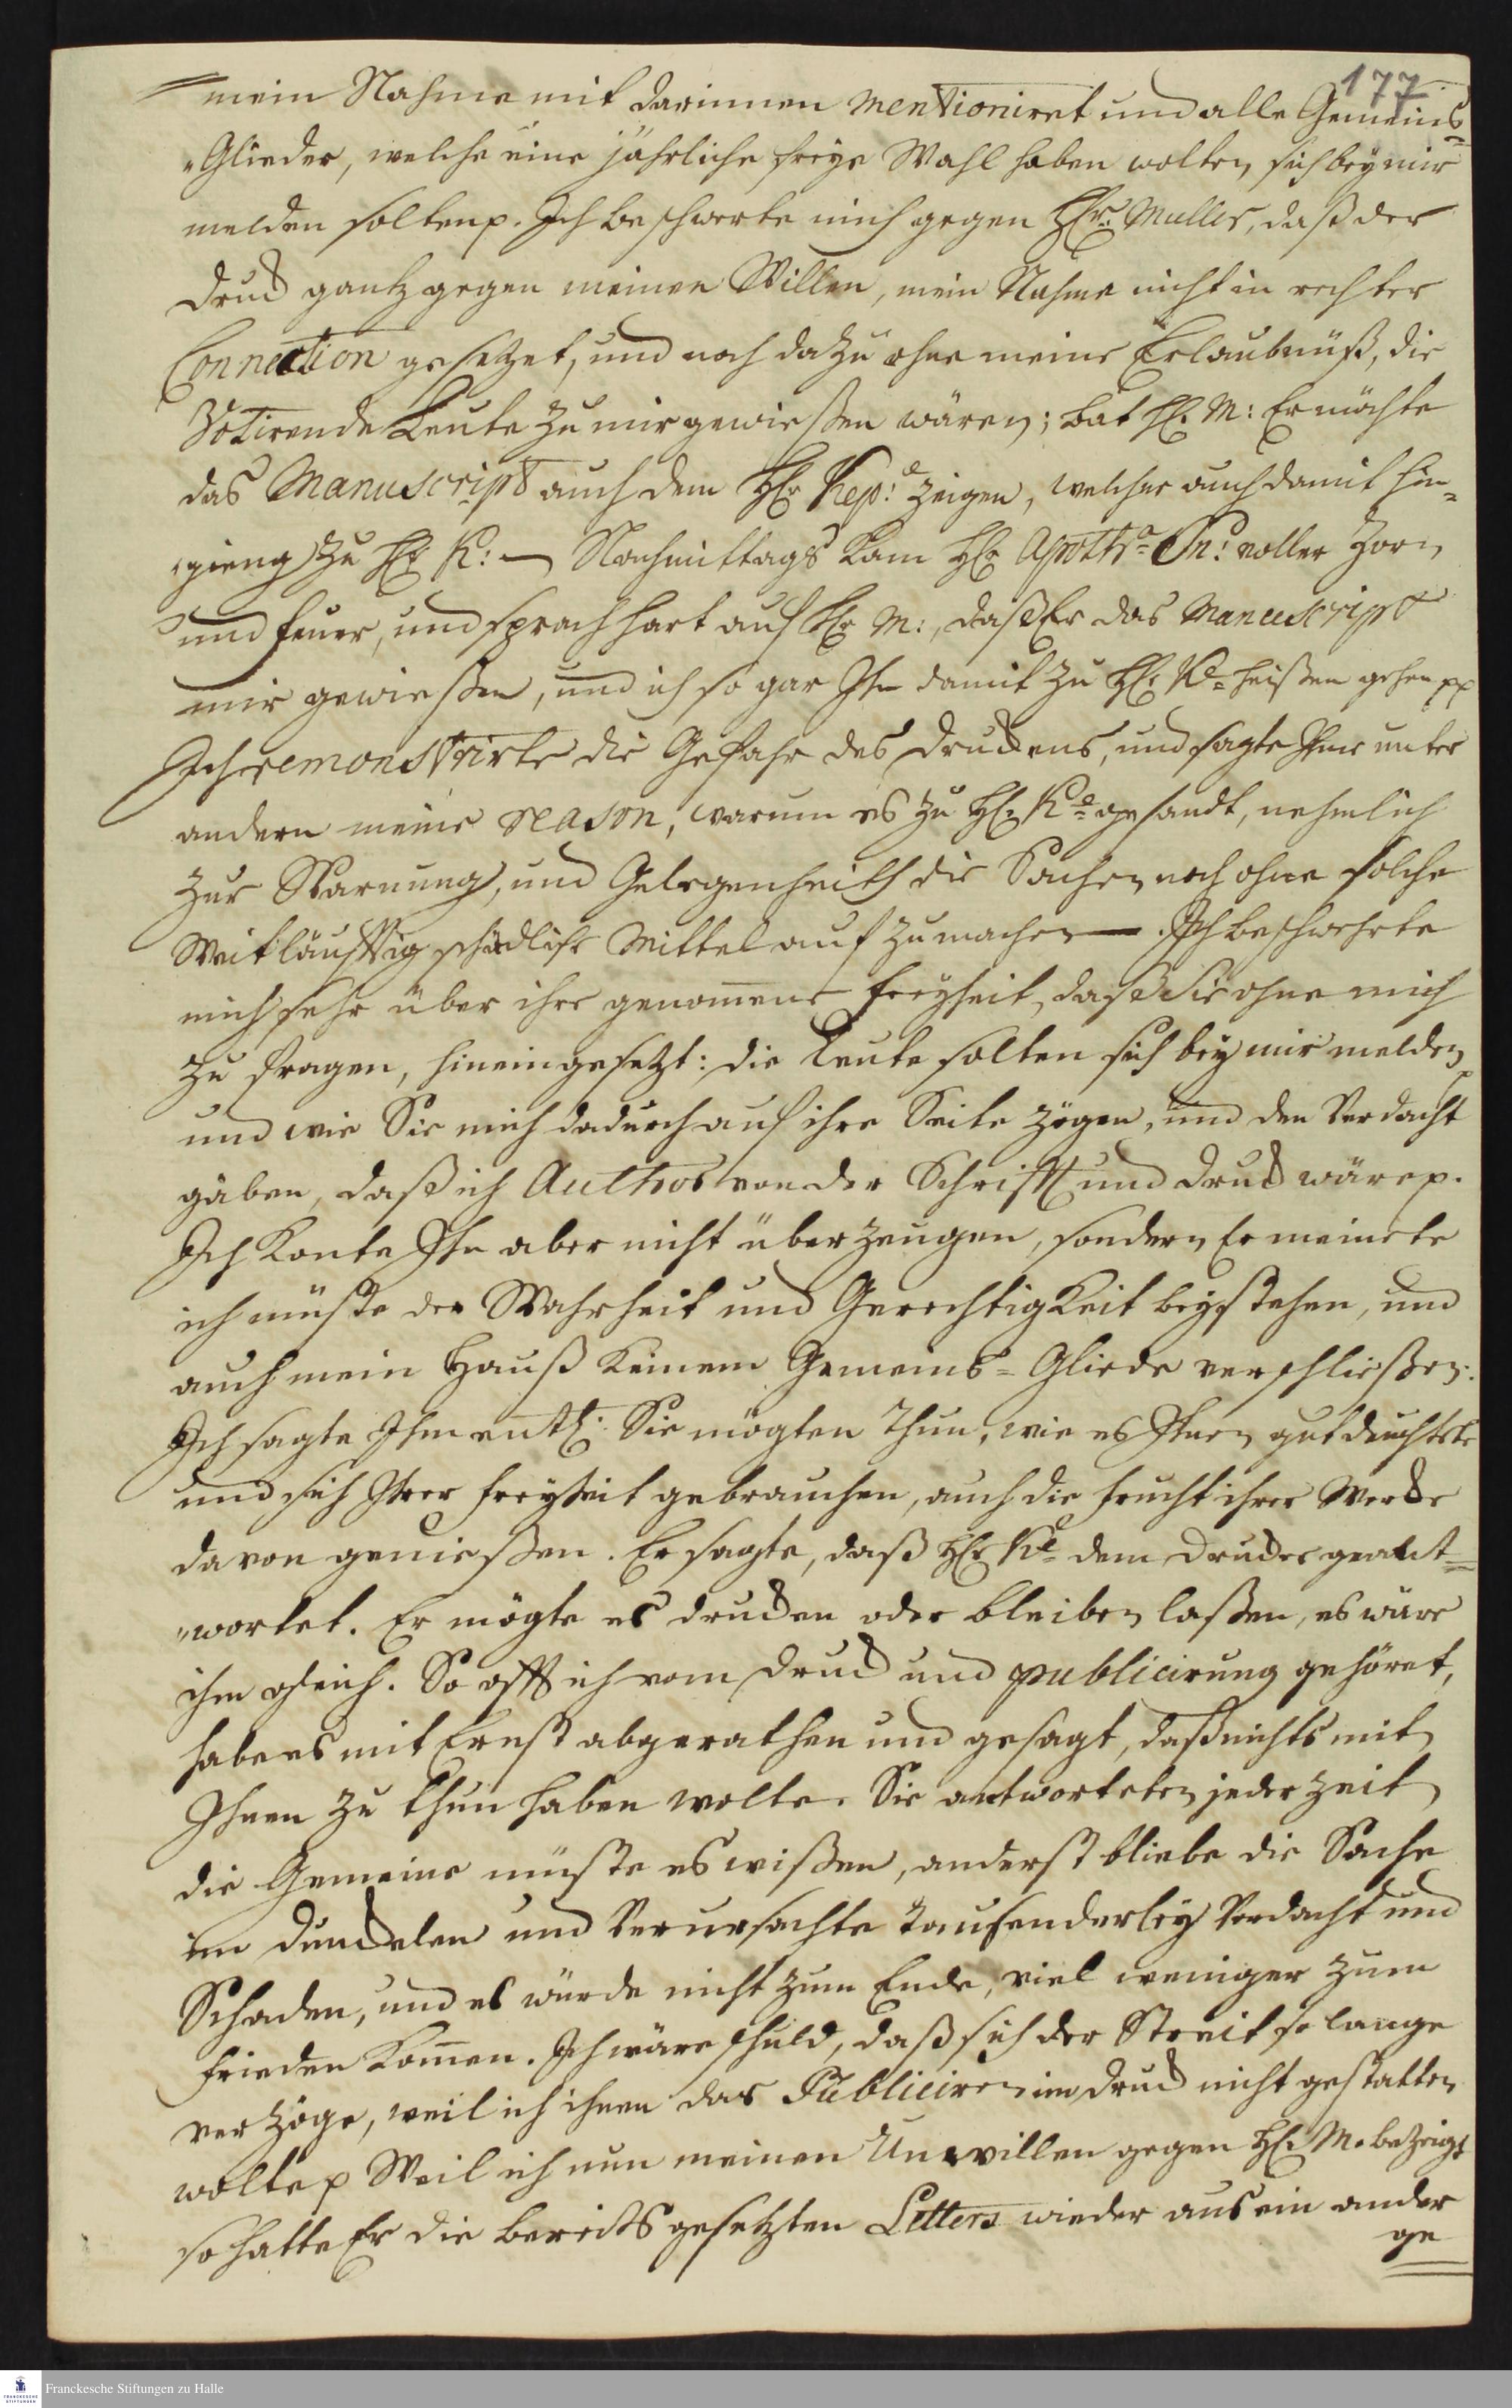 177
mein Nahme mit darinnen mentioniret und alle Gemeins-
"Glieder, welche eine jährliche freye Wahl haben wolten, sich bey mir
melden solten p. Ich beschwerte mich gegen Hr. Muller, daß der
Druck gantz gegen meinen Willen, mein Nahme nicht in rechter
Connection gesetzet, und noch dazu ohne meine Erlaubnüß, die
Votirende Leute zu mir gewießen wären; bat H. M: Er möchte
das Manuscript auch dem Hr Kep: zeigen, welcher auch damit hin-
"gieng zu Hr K: — Nachmittags kam Hr Apothr voller Zorn
und Feuer, und sprach hart auf Hr M:, daß Er das Manuscript
mir gewießen, und ich so gar Ihn damit zu Hr. Ke heißen gehen pp
Ich remonstrirte die Gefahr des Druckens, und sagte Ihm unter
andern meine reason, warum es zu Hr. Ke gesandt, nehmlich
zur Warnung, und Gelegenheit die Sachen noch ohne solche
Weitläufftig schädliche Mittel auf zu machen —. Ich beschwehrte
mich sehr über ihre genom̅ene Freyheit, daß Sie ohne mich
zu fragen, hineingesetzt: die Leute solten sich bey mir melden,
und wie Sie mich dadurch auf ihre Seite zögen, und den Verdacht
gäben, daß ich Author von der Schrifft und Druck wäre p.
Ich konte Ihn aber nicht überzeugen, sondern Er meinete
ich müste der Wahrheit und Gerechtigkeit beystehen, und
auch mein Hauß keinem Gemeins-Gliede verschließen.
Ich sagte Ihm entl: Sie mögten thun, wie es Ihnen gut deuchtete
und sich Ihrer Freyheit gebrauchen, auch die Frucht ihrer Wercke
davon genießen. Er sagte, daß Hr Ke dem Drucker geant-
"wortet. Er mögte es drucken oder bleiben laßen, es wäre
ihm gleich. So offt ich vom Druck und publicirung gehöret,
habe es mit Ernst abgerathen und gesagt, daß nichts mit
Ihnen zu thun haben wolte. Sie antworteten jederzeit
die Gemeine müste es wißen, anderst bliebe die Sache
im Dunckelen und Verursachte tausenderley Verdacht und
Schaden, und es würde nicht zum Ende, viel weniger zum
Frieden kom̅en. Ich wäre schuld, daß sich der Streit so lange
verzöge, weil ich ihnen das Publiciren im Druck nicht gestatten
wolte p Weil ich nun meinen Unwillen gegen H. M. bezeigt
so hatte Er die bereits gesetzten Letters wieder aus ein ander
ge
Franckesche Stiftungen zu Halle